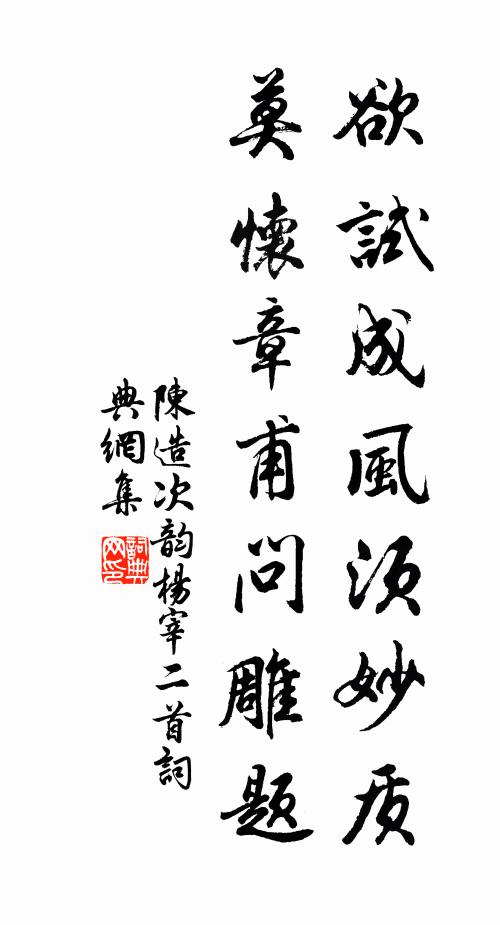 欲試成風須妙质
莫懷章甫問雕题
陳造次韵楊宰二首詞
典網集
詞典网印